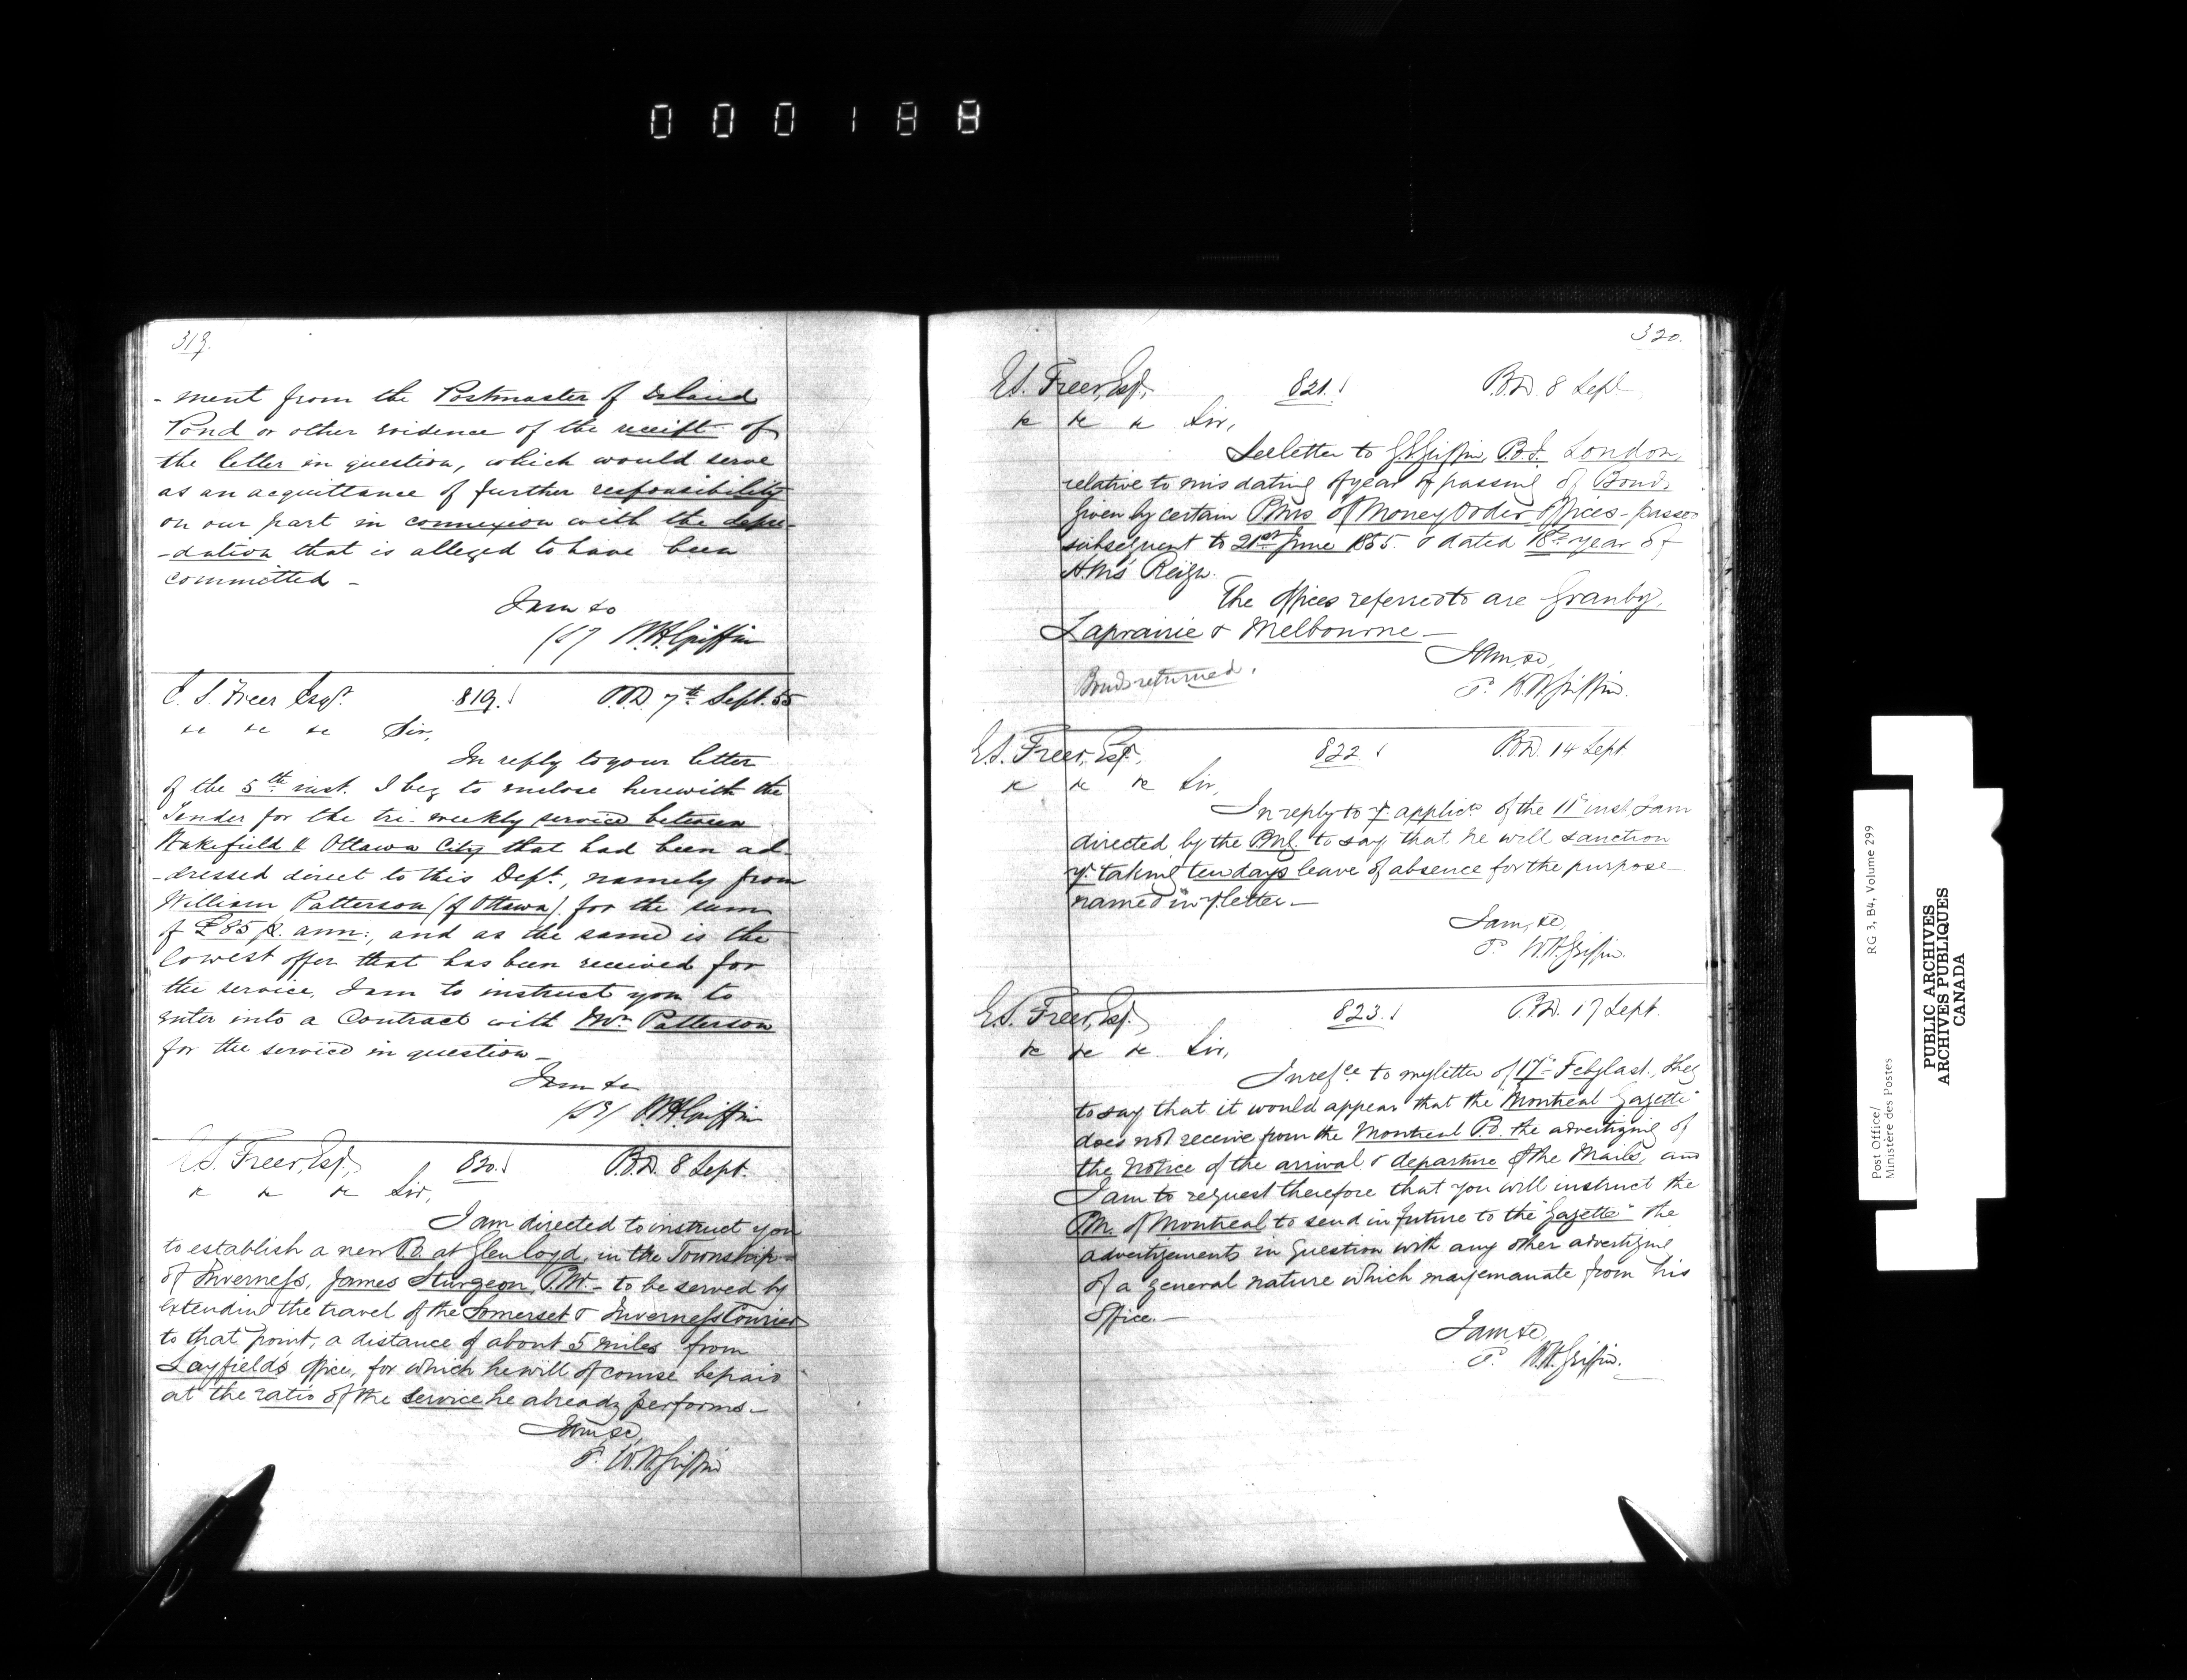 000188
319.
- ment from the Postmaster of Island
Pond or other evidence of the receipt of
the letter in question, which would serve
as an acquittance of further responsibility
on our part in connexion with the depre-
-dation that is alleged to have been
committed -
I am &c
(S) W.H. Griffin
E. S. Freer Esqr. 819. P.O.D. 7th Sept. 55
&c &c &c Sir,
In reply to your letter
of the 5th inst. I beg to enclose herewith the
Tender for the tri-weekly service between
Wakefield & Ottawa City that had been ad-
-dressed direct to this Dept., namely from
William Patterson (of Ottawa) for the sum
of £85 p. ann:, and as the same is the
lowest offer that has been received for
the service, I am to instruct you to
enter into a Contract with Mr. Patterson
for the service in question -
I am &c
(S) W.H. Griffin
E.S. Freer, Esq. 820. P.O.D. 8 Sept.
&c &c &c Sir,
I am directed to instruct you
to establish a new P.O. at Glenloyd, in the Township
of Inverness, James Sturgeon, P.M. - to be served by
extending the travel of the Somerset & Inverness Courier
to that point, a distance of about 5 miles from
Layfield's office, for which he will of course be paid
at the ratio of the service he already performs. -
I am, &c,
W.H. Griffin
320.
E.S. Freer, Esq. 821. P.O.D. 8 Sept.
&c &c &c Sir,
See letter to G.E. Griffin, P.O.I. London,
relative to misdating of year of passing of Bonds
given by certain P.Mrs of Money Order Offices - passed
subsequent to 21st June 1855. & dated 18th year of
H.M's Reign.
The offices referred to are Granby,
Laprairie & Melbourne -
I am, &c,
Bonds returned.
W.H. Griffin.
E.S. Freer, Esqr. 822. P.O.D. 14 Sept.
&c &c &c Sir,
In reply to yr. applicn. of the 11th inst, I am
directed by the P.M.G. to say that he will sanction
yr. taking ten days leave of absence for the purpose
named in yr letter. -
I am, &c,
W.H. Griffin.
E.S. Freer, Esq. 823. P.O.D. 17 Sept.
&c &c &c Sir,
In refce to my letter of 17th Feby last, I beg
to say that it would appear that the "Montreal Gazette"
does not receive from the Montreal P.O. the advertizing of
the notice of the arrival & departure of the Mails, and
I am to request therefore that you will instruct the
P.M. of Montreal to send in future to the "Gazette" the
advertizements in question with any other advertizing
of a general nature which may emanate from his
Office. -
I am, &c,
W.H. Griffin.
Post Office/
Ministère des Postes
RG 3, B4, Volume 299
PUBLIC ARCHIVES
ARCHIVES PUBLIQUES
CANADA